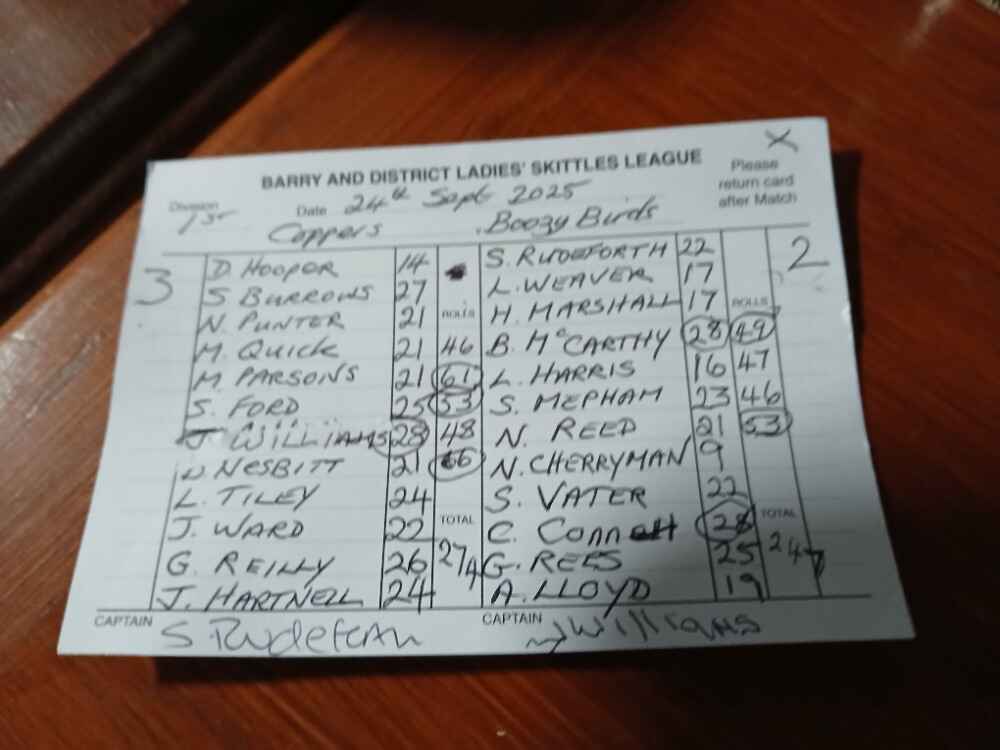 X
BARRY AND DISTRICT LADIES' SKITTLES LEAGUE
Please return card after Match
Division 1st Date 24th Sept 2025
Coppers Boozy Birds
3 2
D. HOOPER 14 S. RUDEFORTH 22
S BURROWS 27 L. WEAVER 17
N. PUNTER 21 ROLLS H. MARSHALL 17 ROLLS
M. QUICK 21 46 B. McCARTHY 28 49
M. PARSONS 21 61 L. HARRIS 16 47
S. FORD 25 53 S. MEPHAM 23 46
J WILLIAMS 28 48 N. REED 21 53
D NESBITT 21 66 N. CHERRYMAN 9
L. TILEY 24 S. VATER 22
J. WARD 22 TOTAL C. Connett 28 TOTAL
G. REILLY 26 274 G. REES 25 247
J. HARTNELL 24 A. LLOYD 19
CAPTAIN S Rudeforth CAPTAIN J Williams